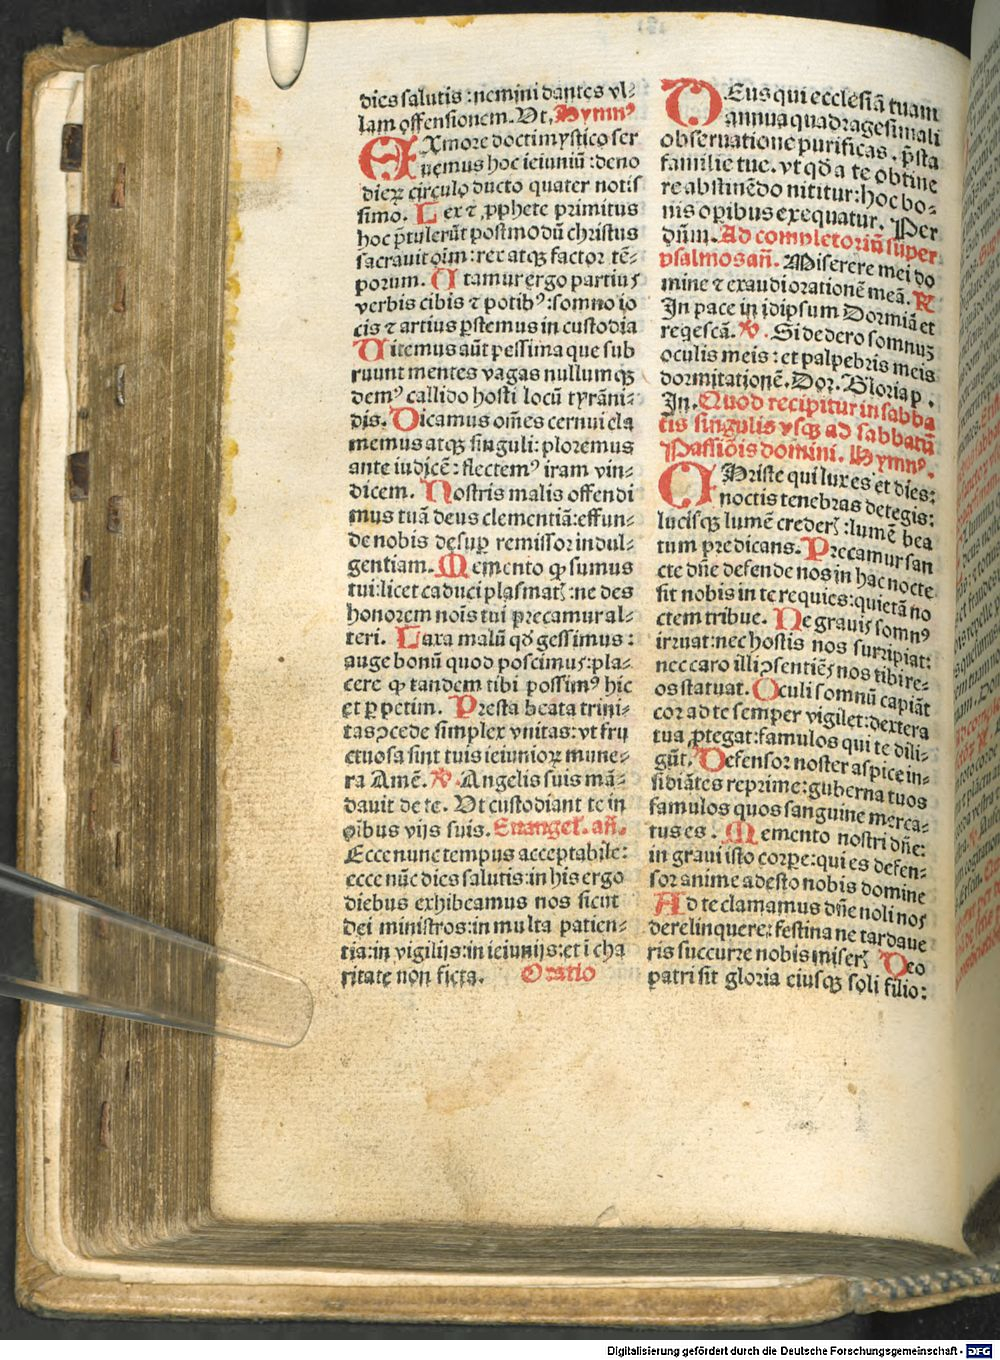 dies salutis : nemini dantes vl⸗
lam offensionem. Vt. Hymnꝰ
EX more docti mystico ser
uemus hoc ieiuniū : deno
dieꝝ circulo ducto quater notis
simo. Lex ⁊ ꝓphete primitus
hoc p̄tulerūt postmodū christus
sacrauit oīm : rex atqꝫ factor tē⸗
porum. Utamur ergo partius
verbis cibis ⁊ potibꝰ : somno io
cis ⁊ artius ꝑstemus in custodia
Uitemus aūt pessima que sub
ruunt mentes vagas nullumqꝫ
demꝰ callido hosti locū tyrāni⸗
dis. Dicamus oīnes cernui cla
memus atqꝫ singuli : ploremus
ante iudicē : flectemꝰ iram vin⸗
dicem. Nostris malis offendi
mus tuā deus clementiā : effun⸗
de nobis desuꝑ remissor indul⸗
gentiam. Memento ꝙ sumus
tui : licet caduci plasmatꝭ : ne des
honorem noīs tui precamur al⸗
teri. Laxa malū qd̄ gessimus :
auge bonū quod poscimus : pla⸗
cere ꝙ tandem tibi possimꝰ hic
et ꝑpetim. Presta beata trini⸗
tas ꝯcede simplex vnitas : vt fru
ctuosa sint tuis ieiunioꝝ mune⸗
ra Amē. ℣. Angelis suis mā⸗
dauit de te. Vt custodiant te in
oībus vijs suis. Euangel. añ.
Ecce nunc tempus acceptabile :
ecce nūc dies salutis : in his ergo
diebus exhibeamus nos sicut
dei ministros : in multa patien⸗
tia : in vigilijs : in ieiunijs : et i cha
ritate non ficta. Oratio
DEus qui ecclesiā tuam
annua quadragesimali
obseruatione purificas . p̄sta
familie tue. vt qd̄ a te obtine
re abstinēdo nititur : hoc bo⸗
nis oꝑibus exequatur. Per
dn̄m. Ad completoriū super
psalmos añ. Miserere mei do
mine ⁊ exaudi orationē meā. ℟
In pace in idipsum Dormiā et
reqescā. ℣. Si dedero somnuꝫ
oculis meis : et palpebris meis
dormitationē. Dor. Gloria p .
In. Quod recipitur in sabba
tis singulis vsqꝫ ad sabbatū
Passiōis domini. Hymnꝰ.
CHriste qui lux es et dies :
noctis tenebras detegis :
lucisqꝫ lumē crederꝭ : lumē bea
tum predicans. Precamur san
cte dn̄e defende nos in hac nocte
sit nobis in te requies : quietā no
ctem tribue. Ne grauis somnꝰ
irruat : nec hostis nos surripiat :
nec caro illi ꝯsentiēs nos tibi re⸗
os statuat. Oculi somnū capiāt
cor ad te semper vigilet : dextera
tua ꝓtegat : famulos qui te dili⸗
gūt. Defensor noster aspice in⸗
sidiātes reprime : guberna tuos
famulos quos sanguine merca⸗
tus es . Memento nostri dn̄e :
in graui isto corpe : qui es defen⸗
sor anime adesto nobis domine
Ad te clamamus dn̄e noli nos
derelinquere : festina ne tardaue
ris succurre nobis miserꝭ Deo
patri sit gloria eiusqꝫ soli filio :
Digitalisierung gefördert durch die Deutsche Forschungsgemeinschaft - DFG